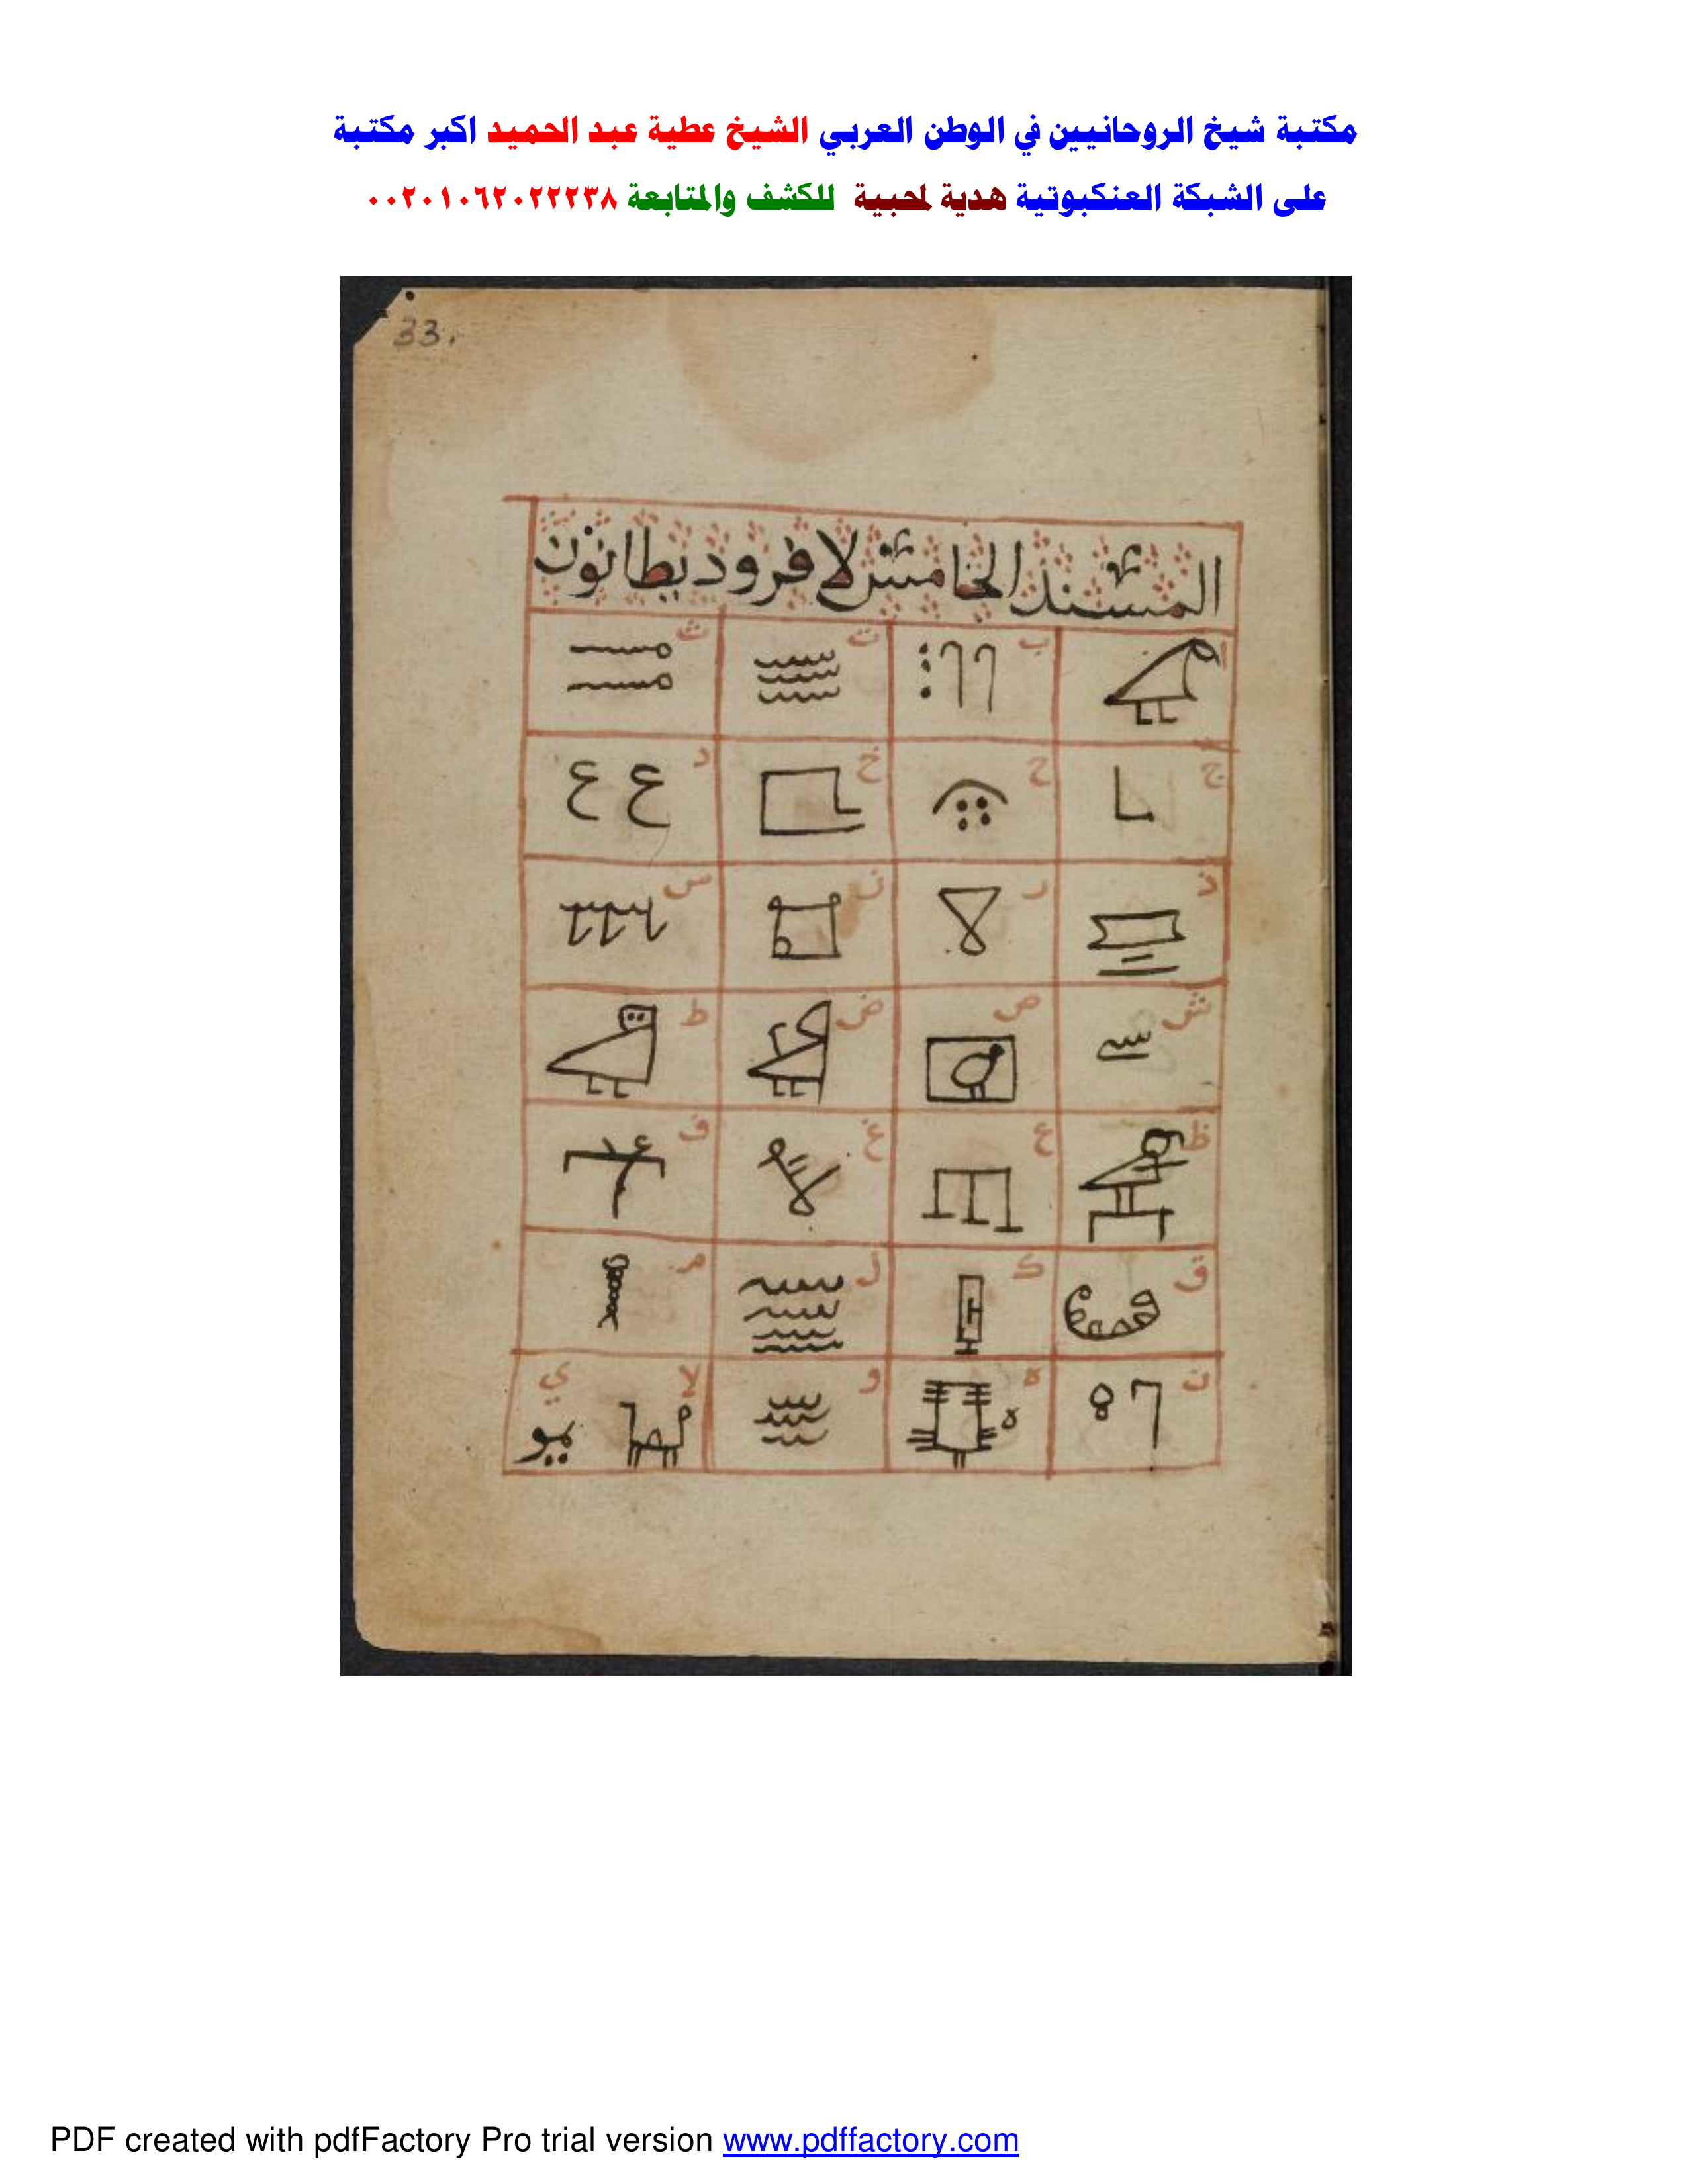 مكتبة شيخ الروحانيين في الوطن العربي الشيخ عطية عبد الحميد اكبر مكتبة
على الشبكة العنكبوتية هدية لمحبية للكشف والمتابعة ٠٠٢٠١٠٦٢٠٢٢٢٣٨
33.
المسند الخامس لافروديطانون
ا ب ت ث
ج ح خ د
ذ ر ز س
ش ص ض ط
ظ ع غ ف
ق ك ل م
ن ه و لا ي
PDF created with pdfFactory Pro trial version www.pdffactory.com